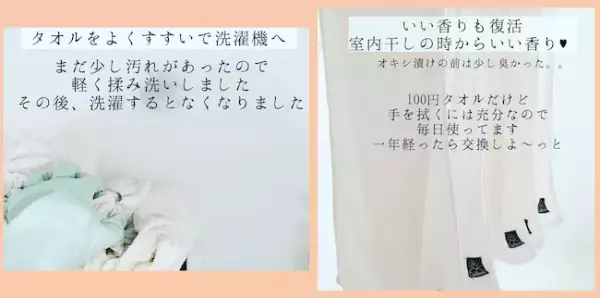 タオルをよくすすいで洗濯機へ
まだ少し汚れがあったので
軽く揉み洗いしました
その後、洗濯するとなくなりました
いい香りも復活
室内干しの時からいい香り♥
オキシ漬けの前は少し臭かった。。
100円タオルだけど
手を拭くには充分なので
毎日使ってます
一年経ったら交換しよ〜っと